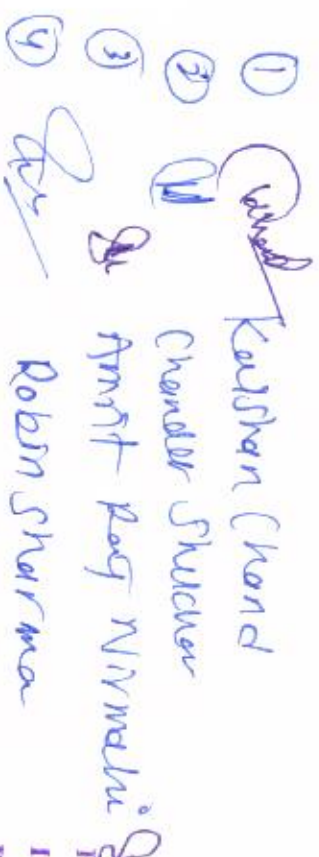 ① Karshan Chand
② Chander Shekhar
③ Amrit Raj Nirmahi
④ Robin Sharma